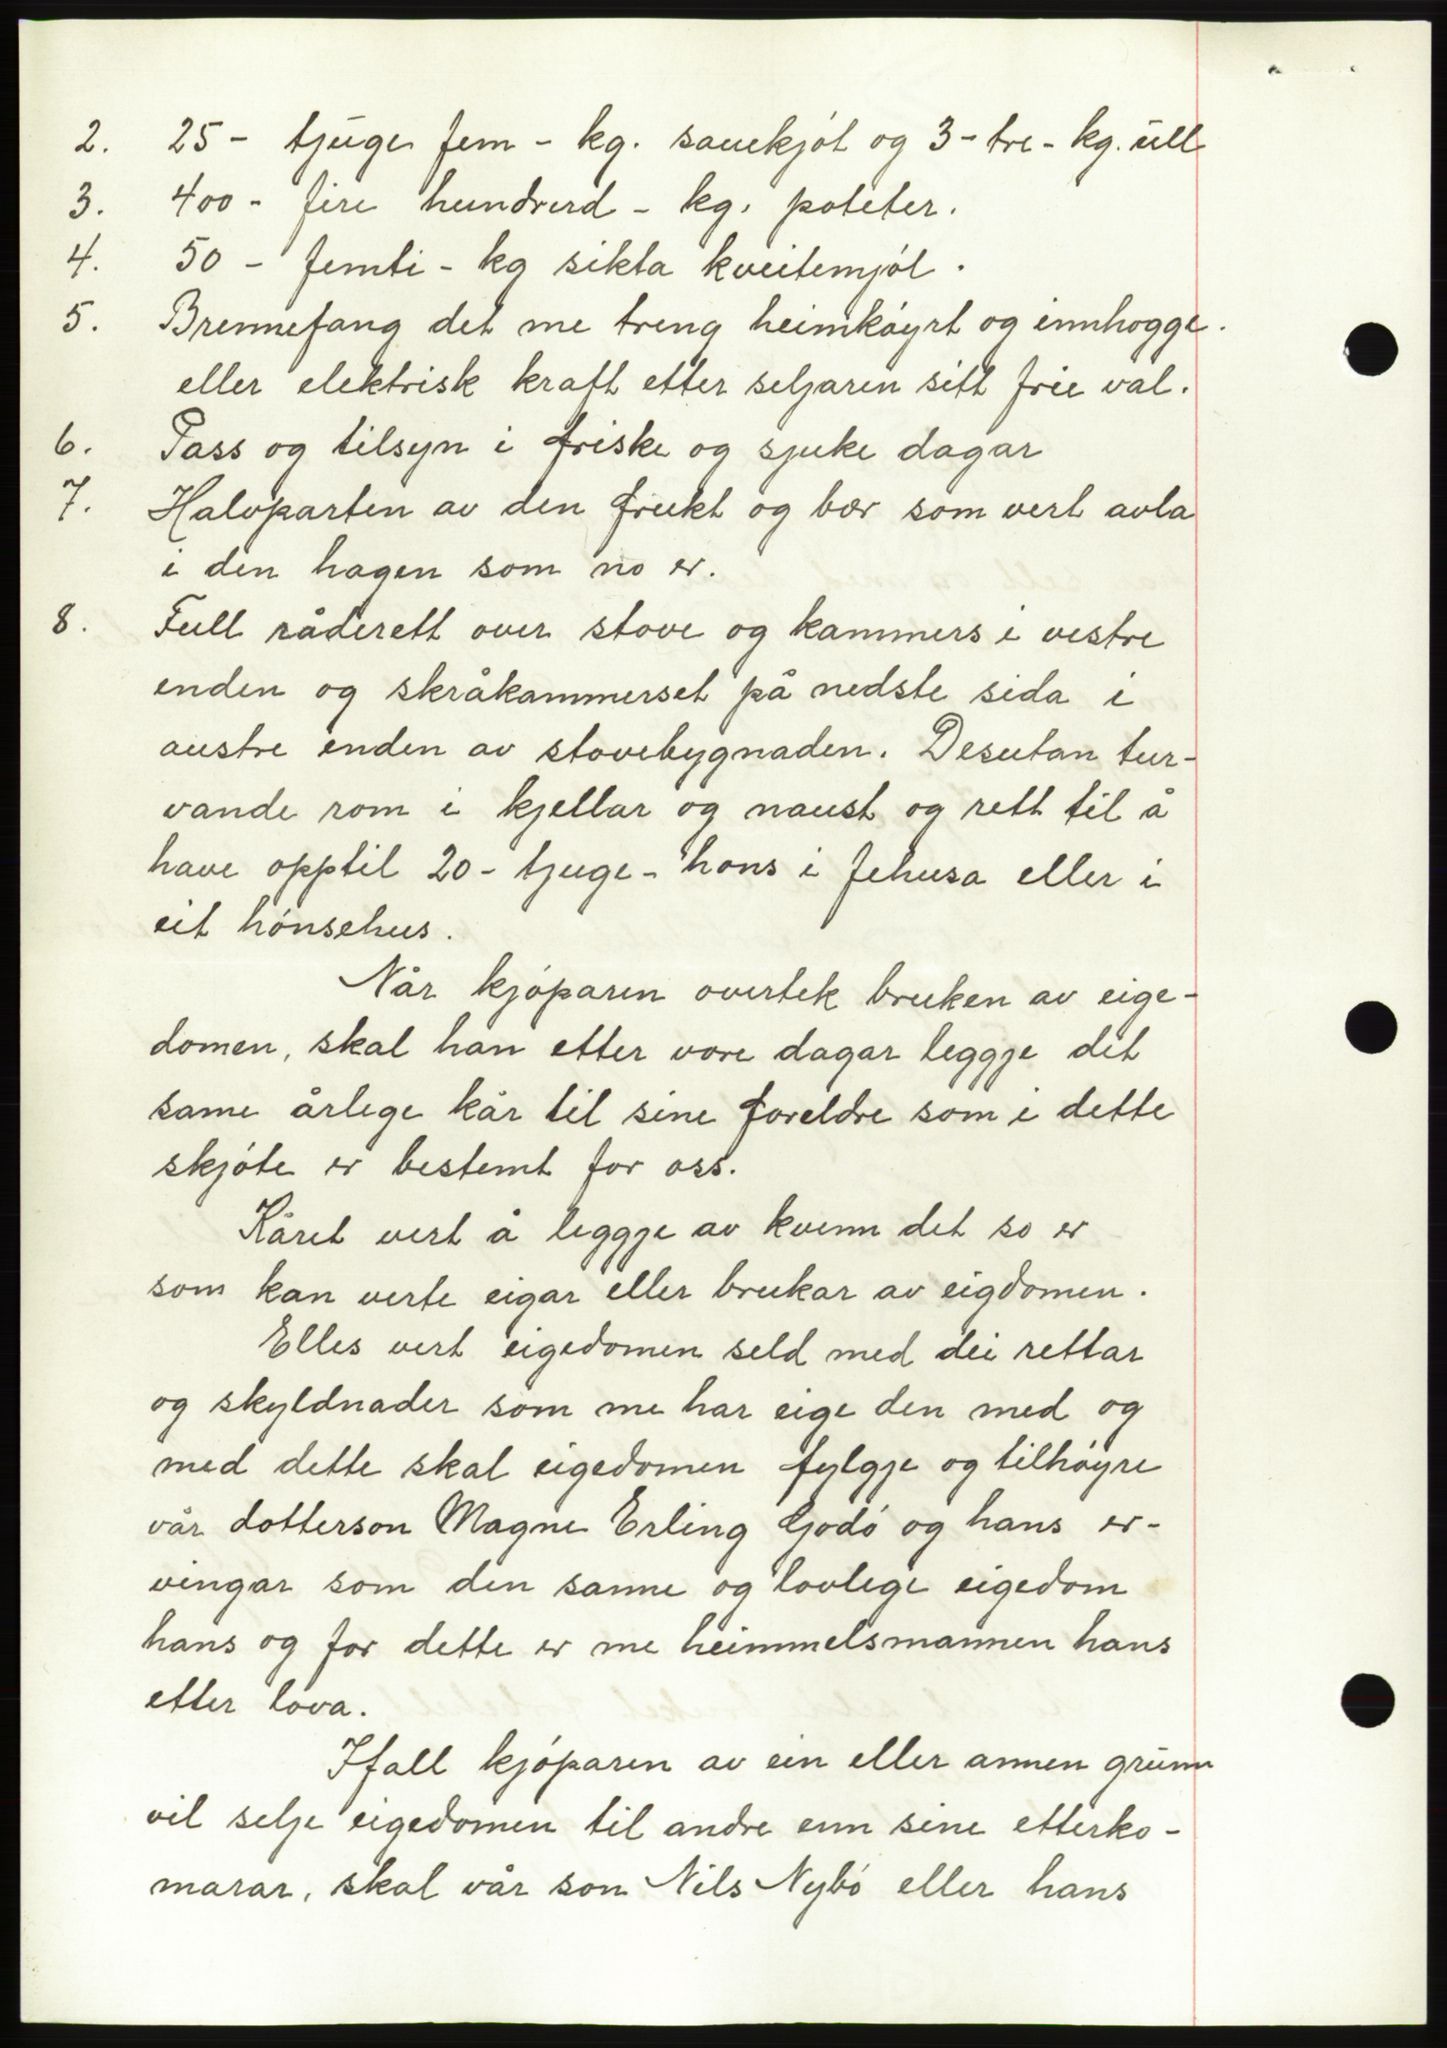 2. 25 - tjuge fem - kg. sauekjót og 3 - tre - kg. ull
3. 400 - fire hundrerd - kg. poteter.
4. 50 - femti - kg sikta kveitemjól.
5. Brennefang det me treng heimkóyrt og innhogge.
eller elektrisk kraft etter seljaren sitt frie val.
6. Pass og tilsyn i friske og sjuke dagar
7. Halvparten av den frukt og bær som vert avla
i den hagen som no er.
8. Full råderett over stove og kammers i vestre
enden og skråkammerset på nedste sida i
austre enden av stovebygnaden. Desutan tur-
vande rom i kjellar og naust og rett til å
have opptil 20 - tjuge - hons i fehusa eller i
eit hónsehus.
Når kjóparen overtek bruken av eige-
domen, skal han etter vore dagar leggje det
same årlege kår til sine foreldre som i dette
skjóte er bestemt for oss.
Kåret vert å leggje av kvenn det so er
som kan verte eigar eller brukar av eigdomen.
Elles vert eigedomen seld med dei rettar
og skyldnader som me har eige den med og
med dette skal eigedomen fylgje og tilhóyre
vår dotterson Magne Erling Godó og hans er-
vingar som den sanne og lovlege eigedom
hans og for dette er me heimmelsmannen hans
etter lova.
Ifall kjóparen av ein eller annen grunn
vil selje eigedomen til andre enn sine etterko-
marar, skal vår son Nils Nybó eller hans